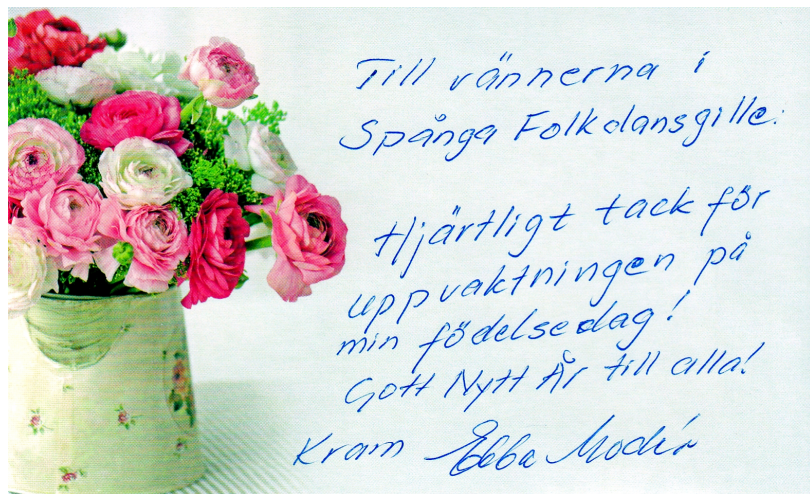 Till vännerna i
Spånga Folkdansgille:
Hjärtligt tack för
uppvaktningen på
min födelsedag!
Gott Nytt År till alla!
Kram Ebba Modén